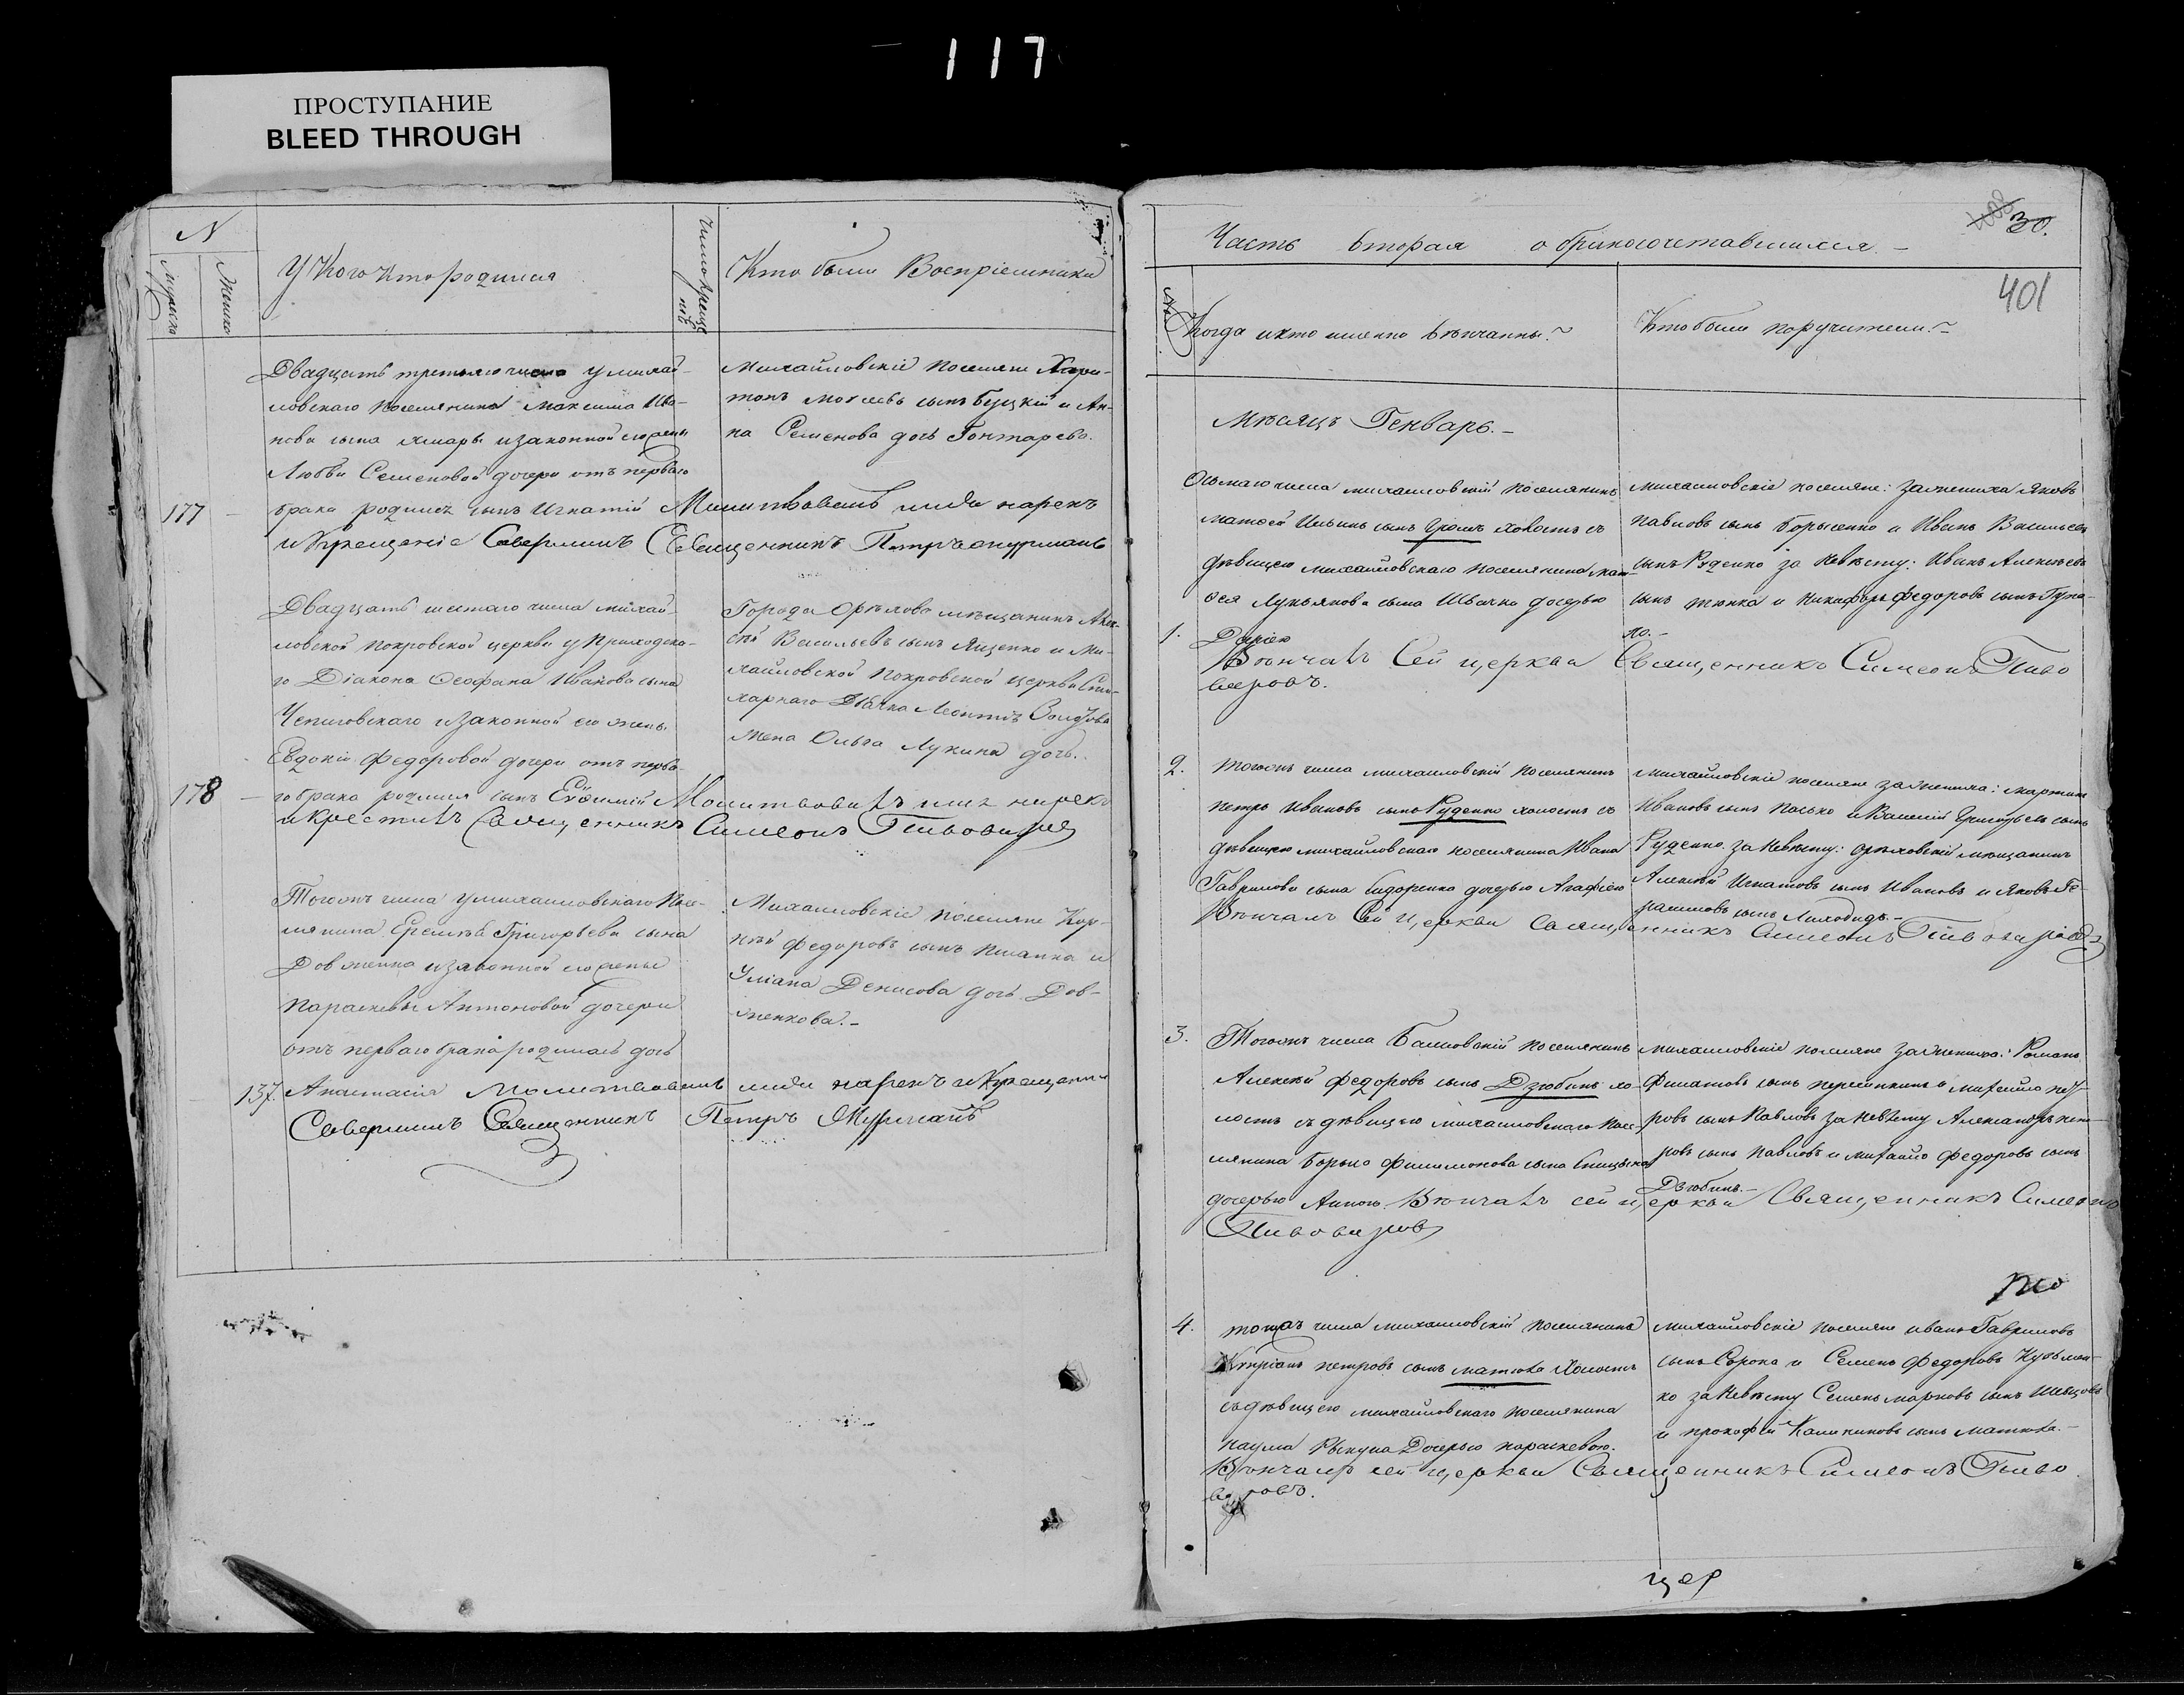 117
ПРОСТУПАНИЕ
BLEED THROUGH
N
Мужеска
Женска
У Кого кто родился
Число крещений
Кто были Восприемники
Двадцать третьяго числа у михай-
ловскаго поселянина максима Ива-
нова сына хмары изаконной его жены
Любви Семеновой дочери отъ перваго
177 брака родился сынъ Игнатій Молитвовалъ имя нарекъ
и Крещеніе Совершилъ Священникъ Петръ
Михайловскіе поселяне Хари-
тонъ сынъ Буцкій и Ан-
на Семенова дочь Гонтарева.
Двадцать шестаго числа михай-
ловской покровской церкви у Приходска-
го Діакона Ѳеофана Иванова сына
изаконной его жены
Евдокіи Федоровой дочери отъ перва-
178 го брака родился сынъ Евѳимій Молитвовалъ имя нарекъ
и крестилъ Священникъ Симеонъ Пивоваровъ
Города Орѣхова мѣщанинъ Алек-
сѣй Васильевъ сынъ Яценко и Ми-
хайловской покровской церкви
Дьячка
жена Ольга Лукина дочь.
Тогожъ числа умихайловскаго Посе-
лянина Еремѣя Григорьева сына
Довженка изаконной его жены
параскевы Антоновой дочери
отъ перваго брака родилась дочь
137. Анастасія Молитвовалъ имя нарекъ и Крещеніе
Совершилъ Священникъ Петръ
Михайловскіе поселяне Кор-
нѣй Федоровъ сынъ и
Уліана Денисова дочь Дов-
женкова.-
Часть вторая о бракосочетавшихся.-
30.
401
№
Когда икто именно вѣнчанны?
Кто были поручители.
Мѣсяцъ Генварь.-
Осьмаго числа михайловскій поселянинъ
матѳей Ильинъ сынъ Громъ холостъ съ
дѣвицею михайловскаго поселянина мат-
ѳея Лукьянова сына Швачки дочерью
1. Даріею
Вѣнчалъ Сей церкви Священникъ Симеонъ Пиво
варовъ.
михайловскіе поселяне: зажениха Яковъ
Павловъ сынъ Борысенко и Иванъ Васильевъ
сынъ Руденко за невѣсту: Иванъ Алексѣевъ
сынъ и Никифоръ Федоровъ сынъ Гупа-
ло.-
2. тогожъ числа михайловскій поселянинъ
петръ Ивановъ сынъ Руденко холостъ съ
дѣвицею михайловскаго поселянина Ивана
Гаврилова сына Сидоренка дочерью Агафіею
Вѣнчалъ Сей церкви Священникъ Симеонъ Пивоваровъ
михайловскіе поселяне зажениха: мартинъ
Ивановъ сынъ и Василій Григорьевъ сынъ
Руденко. за невѣсту: орѣховскій мѣщанинъ
Алексѣй Игнатовъ сынъ Ивановъ и Яковъ Ге-
расимовъ сынъ Лиходидъ.-
3. Тогожъ числа поселянинъ
Алексѣй Федоровъ сынъ Дзюбинъ хо-
лостъ съ дѣвицею михайловскаго посе-
лянина Филимонова сына
дочерью Анною. Вѣнчалъ сей церкви Священникъ Симеонъ
Пивоваровъ
михайловскіе поселяне зажениха: Романъ
Филатовъ сынъ и михайло пет-
ровъ сынъ Павловъ за невѣсту Александръ пет-
ровъ сынъ Павловъ и михайло Федоровъ сынъ
Дзюбинъ.-
по
4. тогожъ числа михайловскій поселянинъ
Кипріанъ петровъ сынъ матюха холостъ
съ дѣвицею михайловскаго поселянина
наума Дочерью параскевою.
Вѣнчалъ сей церкви Священникъ Симеонъ Пиво
варовъ.
михайловскіе поселяне иванъ Гавриловъ
сынъ Сорока и Семенъ Федоровъ Кузьмен-
ко заневѣсту Семенъ марковъ сынъ Швецовъ
и прокофій Калиниковъ сынъ матюха.-
цер